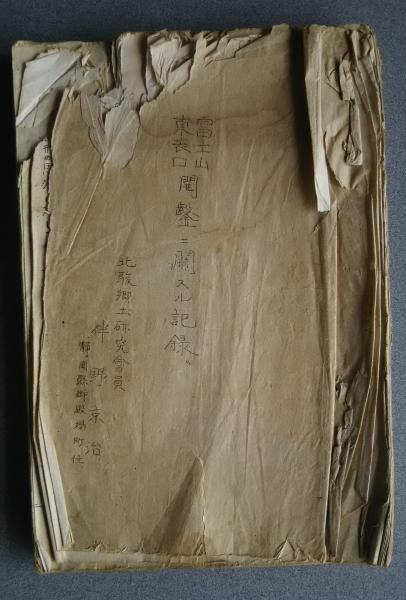 富士山
東表口
開鑿ニ関スル記録
北駿郷土研究会員
伴野京治
静岡縣御殿場町住